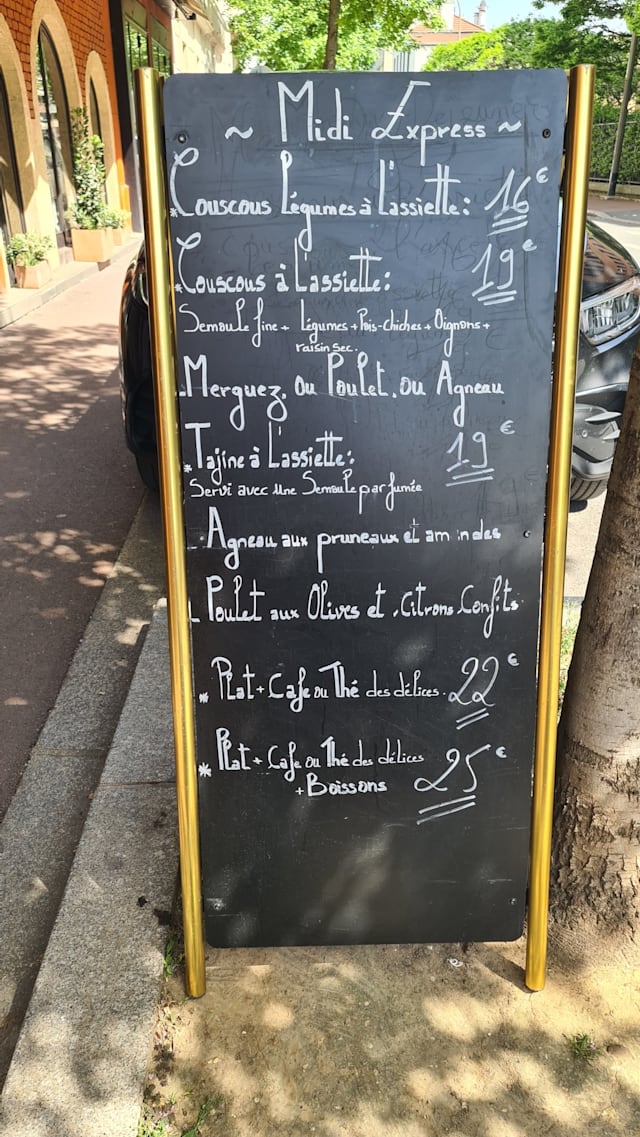 ~ Midi Express ~
* Couscous Légumes à L'assiette: 16€
* Couscous à L'assiette: 19€
Semoule fine + Légumes + Pois-chiches + Oignons +
raisin sec.
.Merguez. ou Poulet. ou Agneau
* Tajine à L'assiette: 19€
Servi avec une Semoule parfumée
. Agneau aux pruneaux et amandes
Poulet aux Olives et . Citrons Confits
* Plat + Cafe ou Thé des délices. 22€
* Plat + Cafe ou Thé des délices 25€
+ Boissons